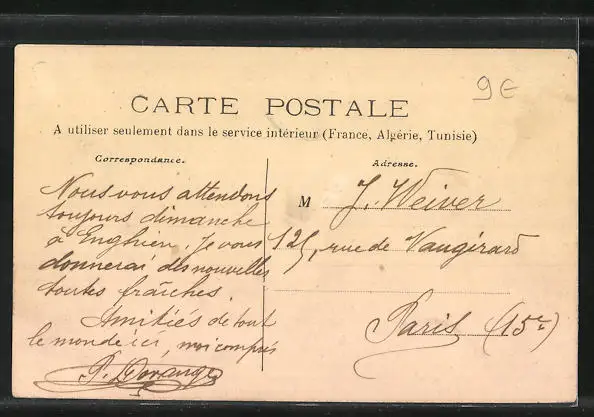 9€
CARTE POSTALE
A utiliser seulement dans le service intérieur (France, Algérie, Tunisie)
Correspondance.
Nous vous attendons
toujours dimanche
à Enghien. Je vous
donnerai des nouvelles
toutes fraîches.
Amitiés de tout
le monde ici, moi compris
Adresse.
M J. Weiver
125, rue de Vaugirard
Paris (15e)